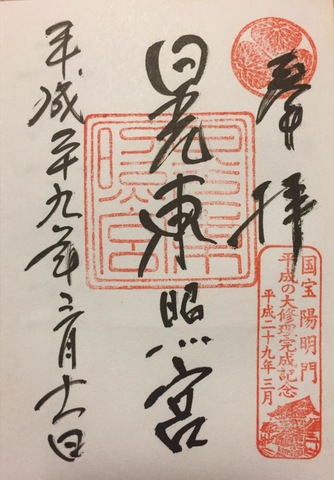 奉拝
国宝陽明門
平成の大修理完成記念
平成二十九年三月
日光東照宮
平成二十九年三月十六日